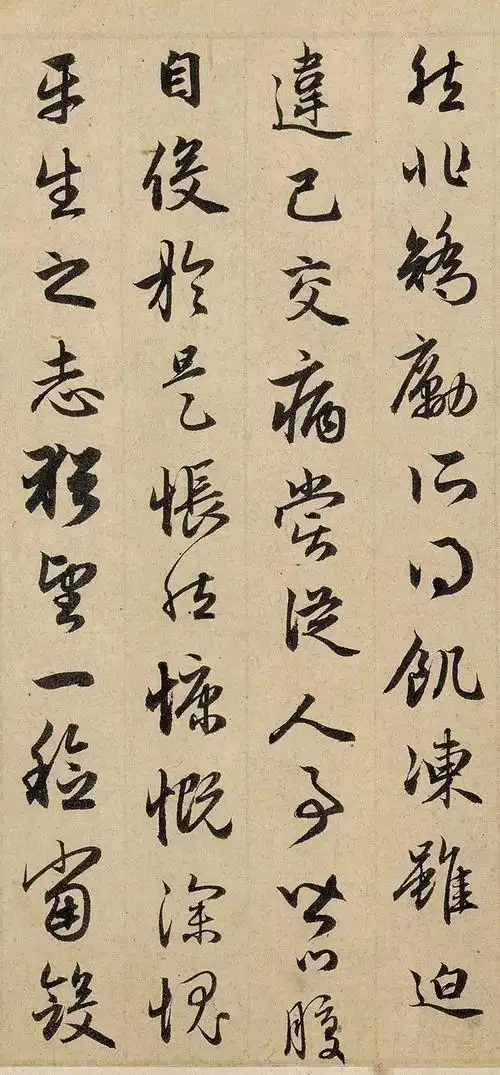 然非矯勵所得飢凍雖迫
違己交病嘗從人事皆口腹
自役於是悵然慷慨深愧
平生之志猶望一稔當斂